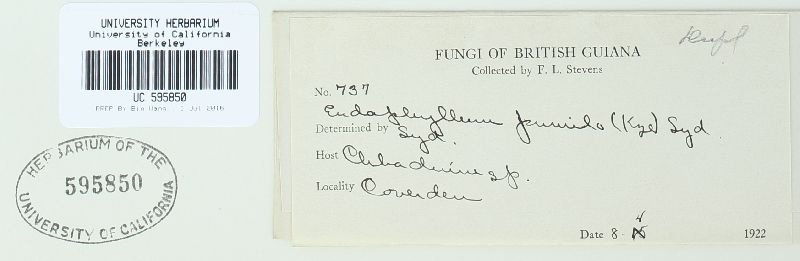 UNIVERSITY HERBARIUM
University of California
Berkeley
UC 595850
PREP By Bin Wang
Jul 2016
HERBARIUM OF THE
595850
UNIVERSITY OF CALIFORNIA
FUNGI OF BRITISH GUIANA
Collected by F. L. Stevens
No. 737
Endophyllum pumilo (Kze) Syd.
Determined by Syd.
Host Clibadium sp.
Locality Coverden
Date 8 - 1922